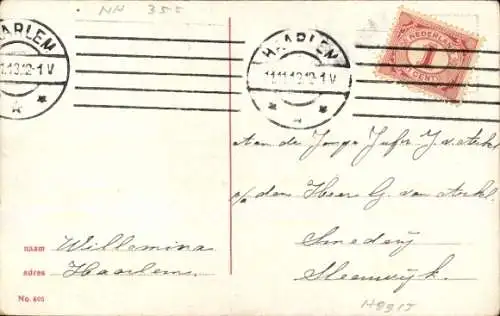 NH 355
HAARLEM
11.11.13.12-1 V
HAARLEM
11.11.13.12-1 V
NEDERLAND
1
CENT
Aan de Jonge Jufr J. v. Arkel
p/a den Heer G. van Arkel
Smederij
Steenwijk.
naam Willemina
adres Haarlem.
No. 605